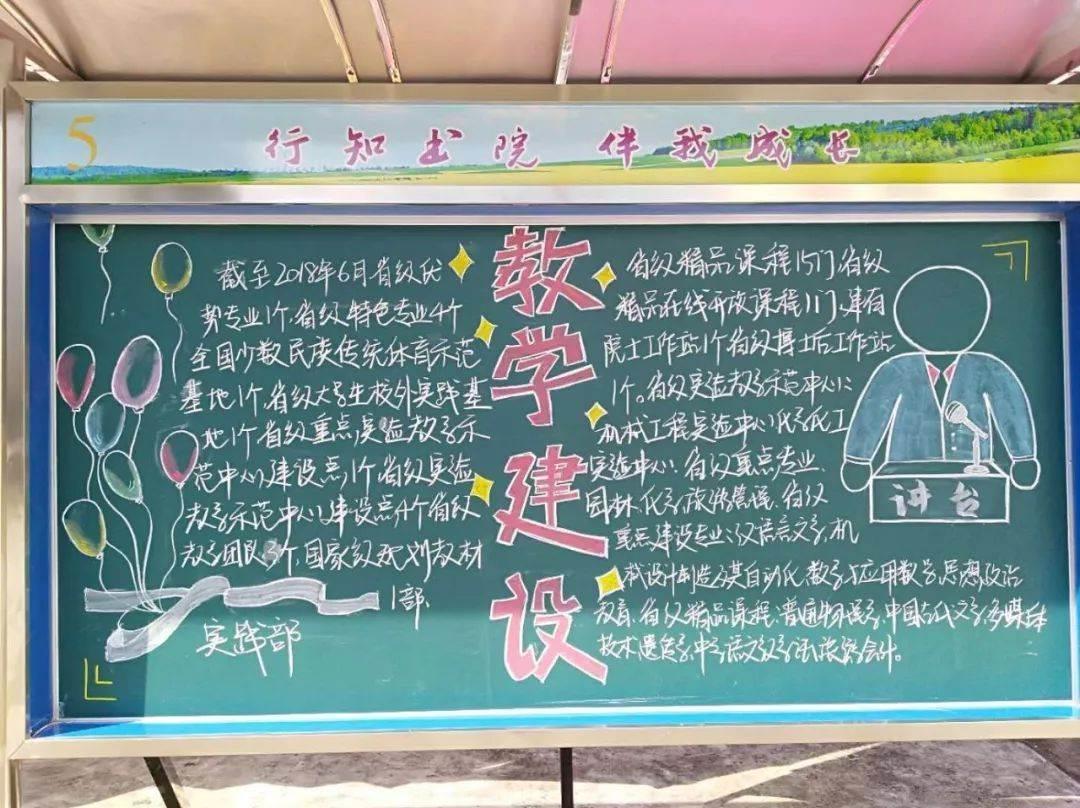 5
行知书院 伴我成长
教学建设
截至2018年6月省级优
势专业1个,省级特色专业4个
全国少数民族传统体育示范
基地1个,省级大学生校外实践基
地1个省级重点实验教学示
范中心建设点1个省级实验
教学示范中心建设点4个省级
教学团队3个,国家级规划教材
1部.
实践部
省级精品课程15门,省级
精品在线开放课程1门,建有
院士工作站1个省级博士后工作站
1个。省级实验教学示范中心:
机械工程实验中心化学化工
实验中心.省级重点专业
园林,化学,旅游管理,省级
重点建设专业:汉语言文学,机
械设计制造及其自动化,数学与应用数学,思想政治
教育.省级精品课程:普通物理学,中国古代文学,多媒体
技术,遗传学,中学语文教学法,旅游会计。
讲台